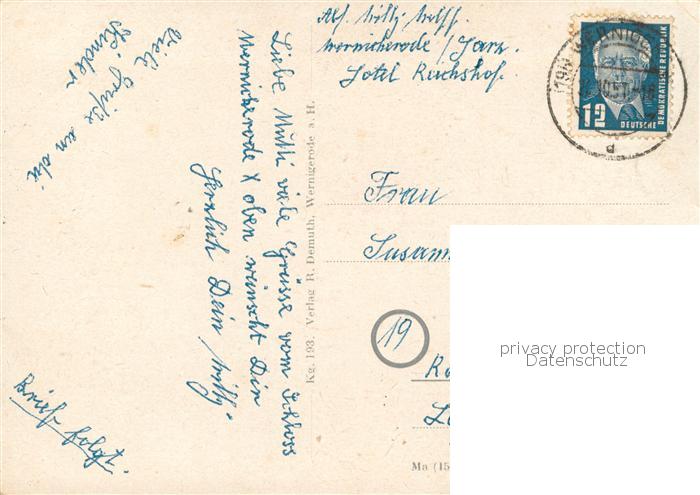 Abs. Willy Wolff.
Wernicherode / Harz.
Hotel Reichshof.
Liebe Mutti viele Grüsse vom Schloss
Wernicherode X oben wünscht Dir
Herzlich Dein Willy
Viele Grüße an die
Kinder
Brief folgt.
Kg. 193. Verlag R. Demuth, Wernigerode a. H.
12
DEUTSCHE
DEMOKRATISCHE REPUBLIK
d
Frau
Susann
19
Ma (15
privacy protection
Datenschutz